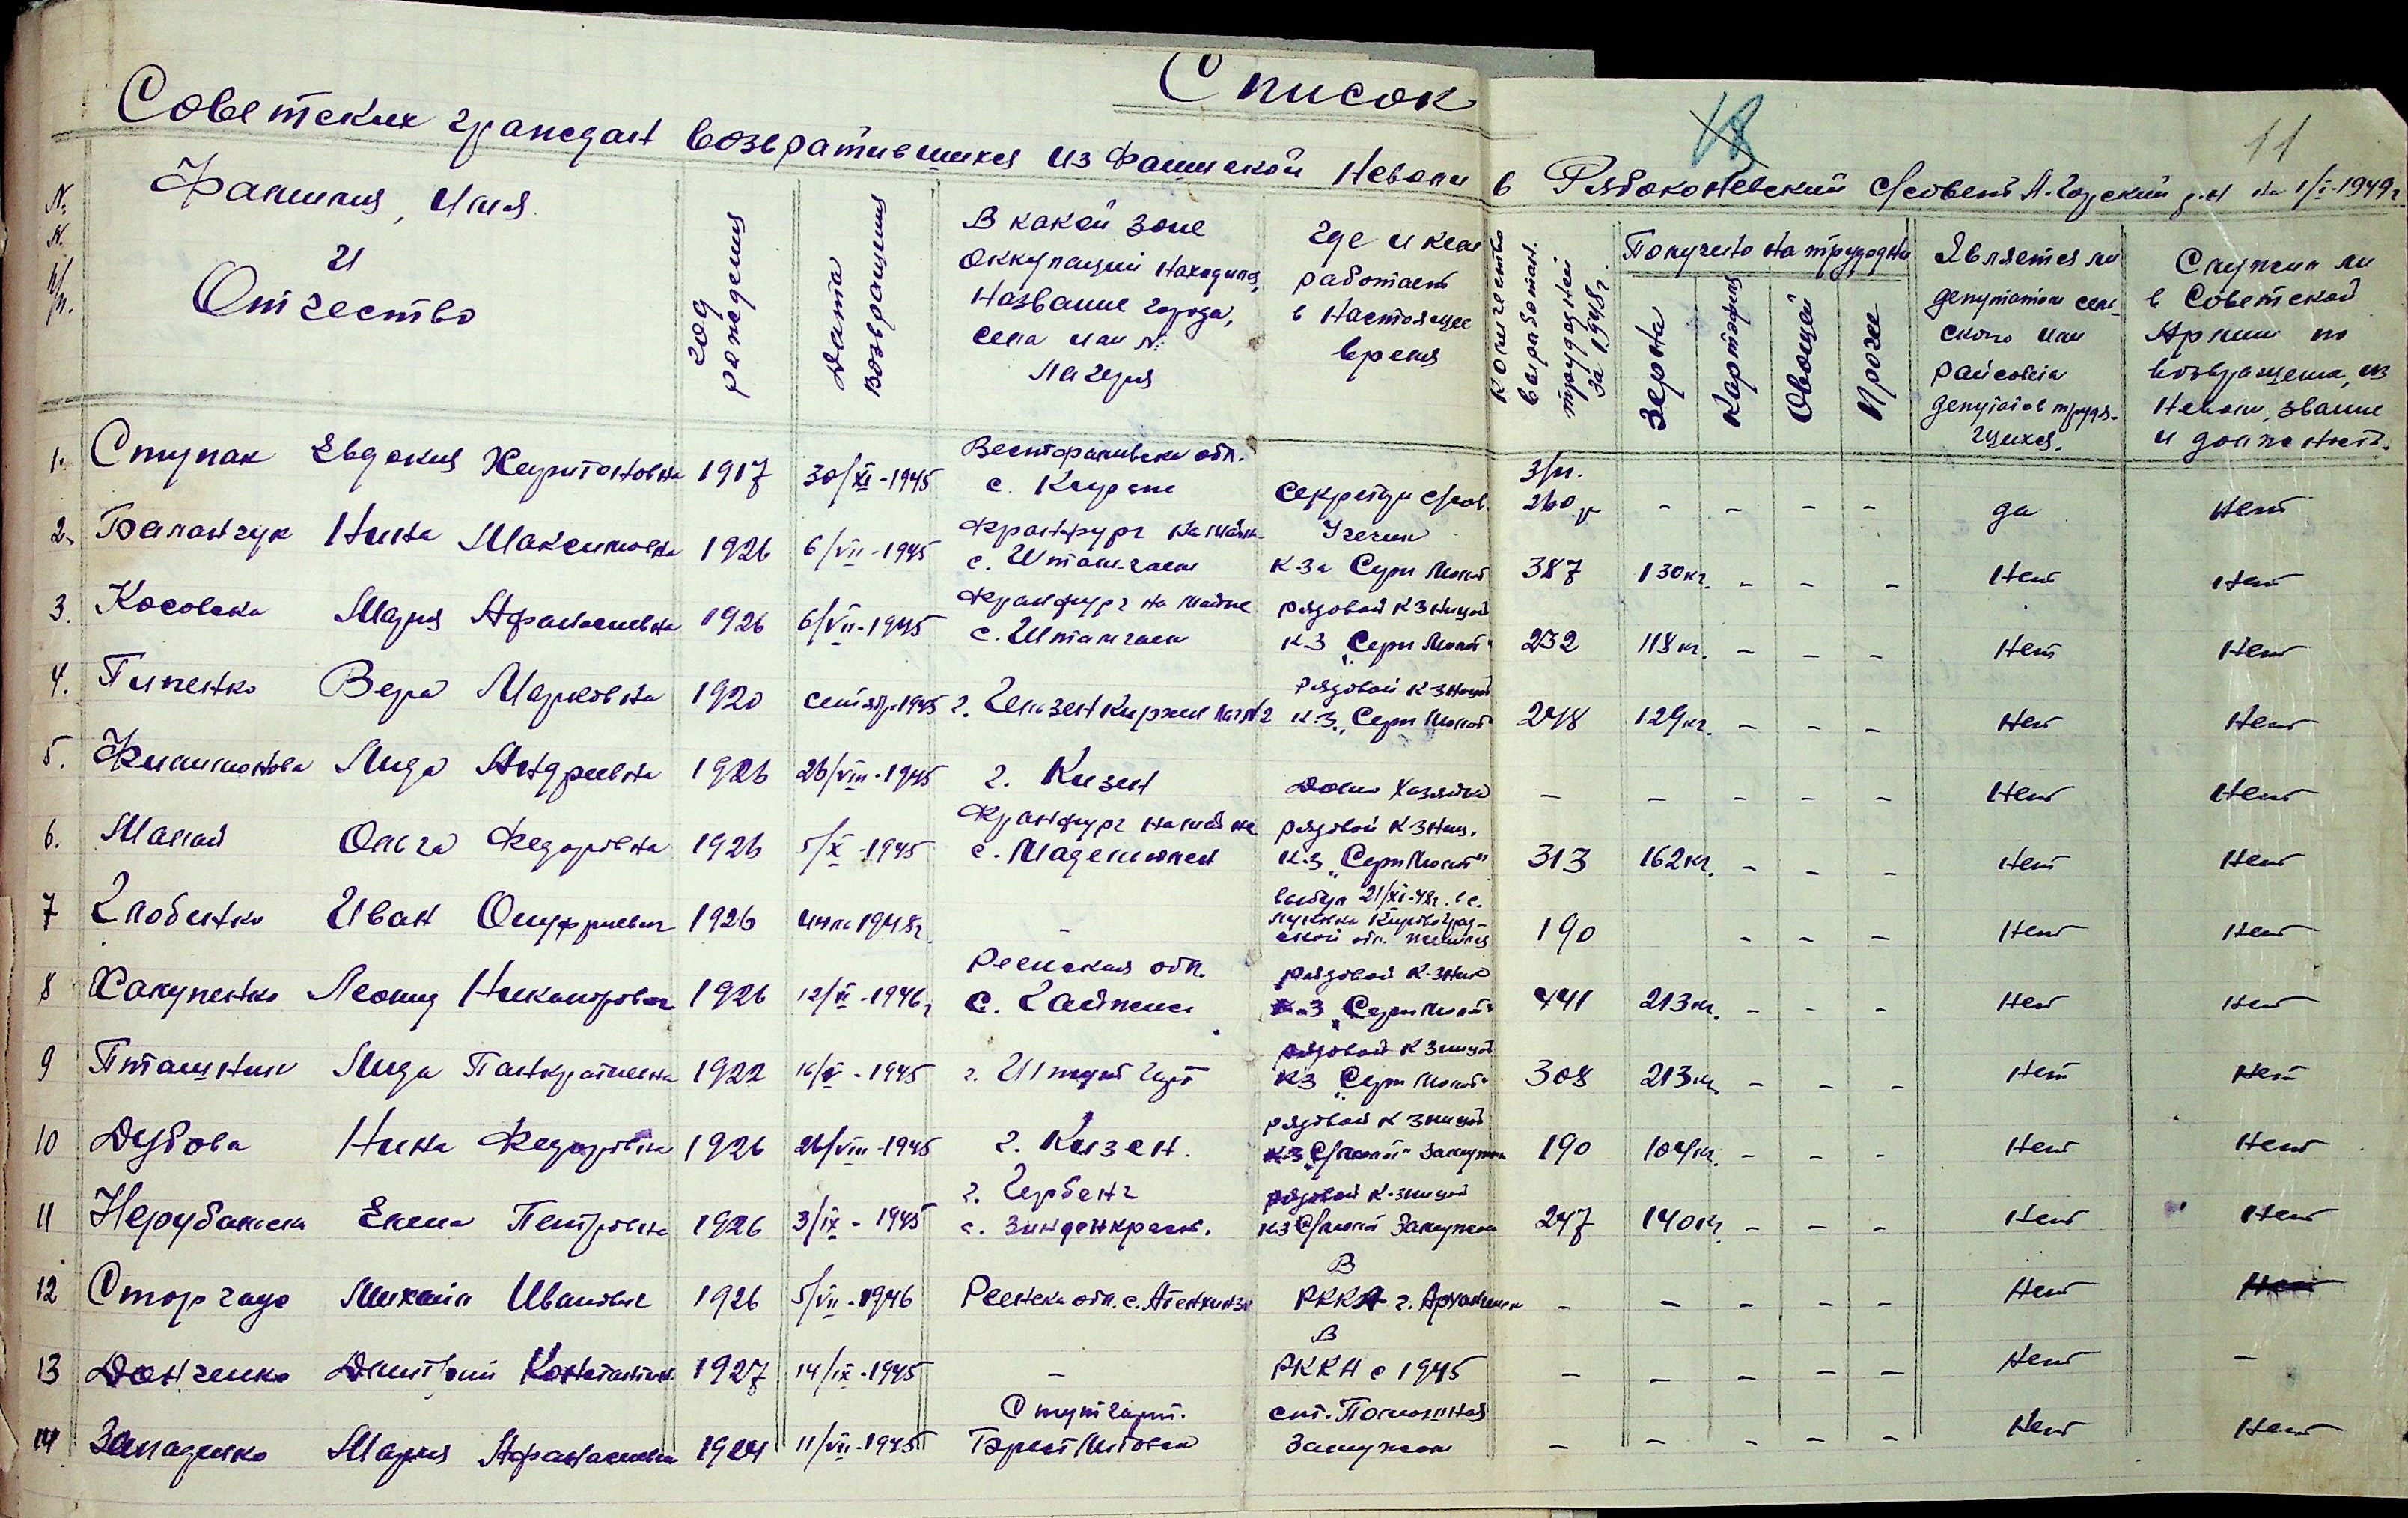 Список
18
11
Советских граждан возвратившихся из Фашиской Неволи в Рябоконевский с/совет А-Горский р-н на 1/I-1949г.
N: N. п/п.
Фамилия, Имя и Отчество
год рождения
Дата возвращения
В какой зоне оккупации находился, Название города, села или N: лагеря
Где и кем работает в настоящее время
Количество выработан. трудодней за 1948г.
Получено на трудодни
Зерна
Картофеля
Овощей
Проче
Является ли депутатом сельского или райсовета депутатов трудящихся.
Служил ли в Советской Армии по возвращении из Неволи, звание и должность.
1. Ступак Евдокия Харитоновна 1917 30/XI-1945 Вестфаливска обл. с. секретарь с/сов. з/п. 260 р - - - - да нет
2. Баланчук Нина Максимовна 1926 6/VII-1945 Франкфург на Майне с. К-за Серп Молот 387 130кг. - - - Нет Нет
3. Косовска Мария Афанасиевна 1926 6/VII-1945 Франфург на Майне с. рядовой к-зницой к-з "Серп Молот" 232 118 кг. - - - Нет Нет
4. Пипенко Вера Марковна 1920 сентябр 1945 г. рядовой к-зницой к-з "Серп Молот" 248 129кг. - - - Нет Нет
5. Филимонова Лида Андреевна 1926 26/VIII-1945 г. Кизен Домо Хазяйка - - - - - Нет Нет
6. Малай Ольга Федоровна 1926 5/X-1945 Франфург на Майне с. рядовой к-зниц. к-з "Серп Молот" 313 162кг. - - - Нет Нет
7 Глобенко Иван Онуфриевич 1926 1948г. - выбул 21/XI-48г. в с. Кировоградской обл. женился 190 - - - Нет Нет
8 Халупенко Леонид Никанорович 1926 12/VI-1946г. Реенская обл. с. рядовой к-зник к-з "Серп Молот" 441 213кг. - - - Нет Нет
9 Пташник Лида Панкратиевна 1922 1945 г. Штутгарт рядовой к-зницой к-з "Серп Молот" 308 213кг. - - - Нет Нет
10 Дубова Нина Федоровна 1926 26/VIII-1945 г. Кизен. рядовой к-зницой к-з "С/молот" Замужем 190 104кг. - - - Нет Нет
11 Нерубальска Елена Петровна 1926 3/IX-1945 г. с. рядовой к-зницой к-з С/молот Замужем 247 140кг. - - - Нет Нет
12 Сторчауе Михаил Иванович 1926 5/VII-1946 Реенска обл. с. В РККА г. - - - - - Нет Нет
13 Донченко Дмитрий Константин 1927 14/IX-1945 - В РККА с 1945 - - - - - Нет -
14 Западенко Мария Афанасиевна 1924 11/VII-1945 Стутгарт. Брест Литовск ст. Помошная Замужем - - - - - Нет Нет